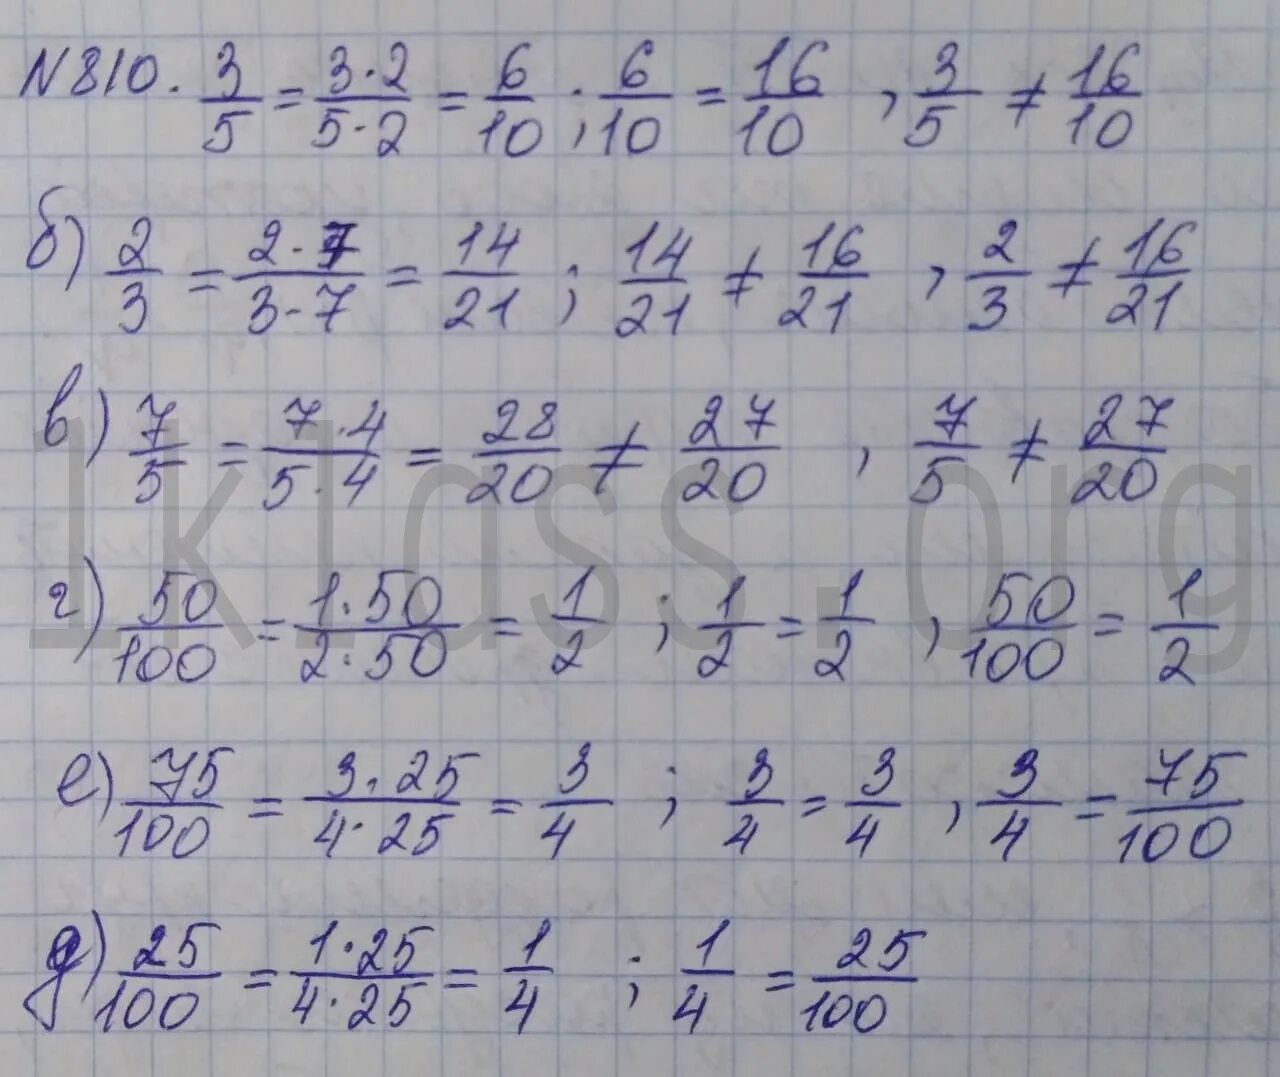 N810. 3/5 = 3·2/5·2 = 6/10 ; 6/10 = 16/10 , 3/5 ≠ 16/10
б) 2/3 = 2·7/3·7 = 14/21 ; 14/21 ≠ 16/21 , 2/3 ≠ 16/21
в) 7/5 = 7·4/5·4 = 28/20 ≠ 27/20 , 7/5 ≠ 27/20
1klass.org
г) 50/100 = 1·50/2·50 = 1/2 ; 1/2 = 1/2 , 50/100 = 1/2
е) 75/100 = 3·25/4·25 = 3/4 ; 3/4 = 3/4 , 3/4 = 75/100
д) 25/100 = 1·25/4·25 = 1/4 ; 1/4 = 25/100